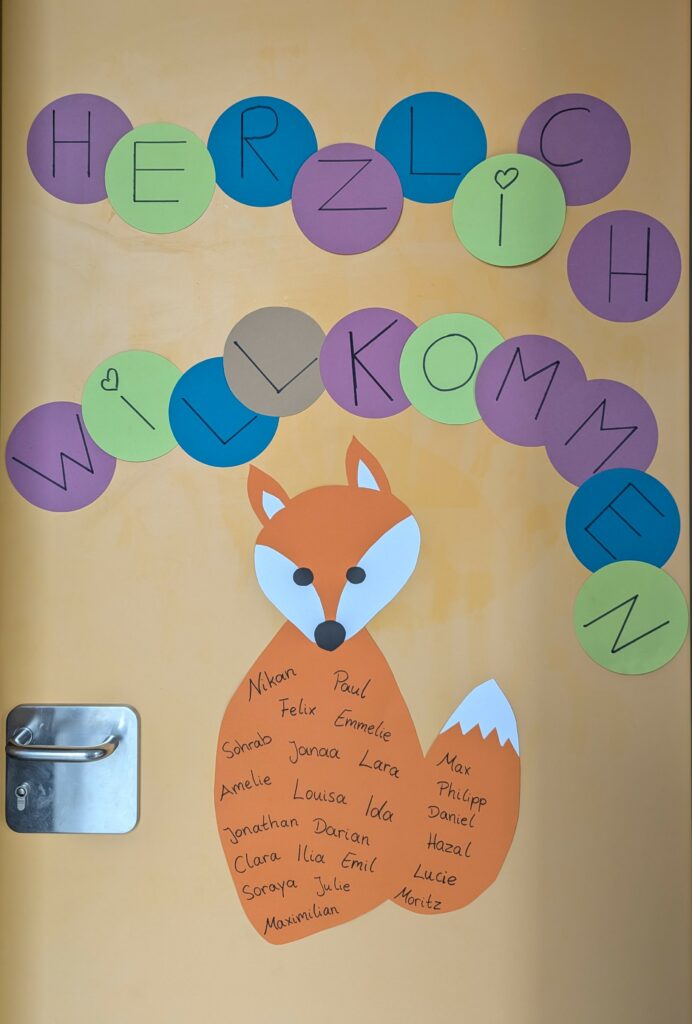 HERZLiCH
WiLLKOMMEN
Nikan Paul
Felix Emmelie
Sohrab Janaa Lara
Amelie Louisa Ida
Jonathan Darian
Clara Ilia Emil
Soraya Julie
Maximilian
Max
Philipp
Daniel
Hazal
Lucie
Moritz